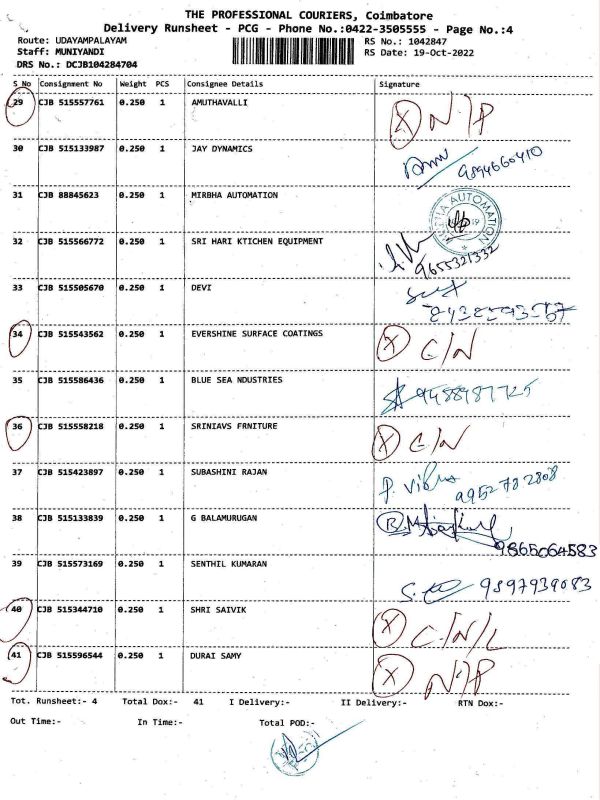 THE PROFESSIONAL COURIERS, Coimbatore
Delivery Runsheet - PCG - Phone No.:0422-3505555 - Page No.:4
Route: UDAYAMPALAYAM RS No.: 1042847
Staff: MUNIYANDI RS Date: 19-Oct-2022
DRS No.: DCJB104284704
S No Consignment No Weight PCS Consignee Details Signature
29 CJB 515557761 0.250 1 AMUTHAVALLI X N/P
30 CJB 515133987 0.250 1 JAY DYNAMICS 9894660410
31 CJB 88845623 0.250 1 MIRBHA AUTOMATION MIRBHA AUTOMATION
32 CJB 515566772 0.250 1 SRI HARI KTICHEN EQUIPMENT 9655321332
33 CJB 515505670 0.250 1 DEVI
34 CJB 515543562 0.250 1 EVERSHINE SURFACE COATINGS X C/N
35 CJB 515586436 0.250 1 BLUE SEA NDUSTRIES
36 CJB 515558218 0.250 1 SRINIAVS FRNITURE X C/N
37 CJB 515423897 0.250 1 SUBASHINI RAJAN 9952782808
38 CJB 515133839 0.250 1 G BALAMURUGAN 9865064583
39 CJB 515573169 0.250 1 SENTHIL KUMARAN 9897939083
40 CJB 515344710 0.250 1 SHRI SAIVIK X C/N/L
41 CJB 515596544 0.250 1 DURAI SAMY X N/P
Tot. Runsheet:- 4 Total Dox:- 41 I Delivery:- II Delivery:- RTN Dox:-
Out Time:- In Time:- Total POD:-